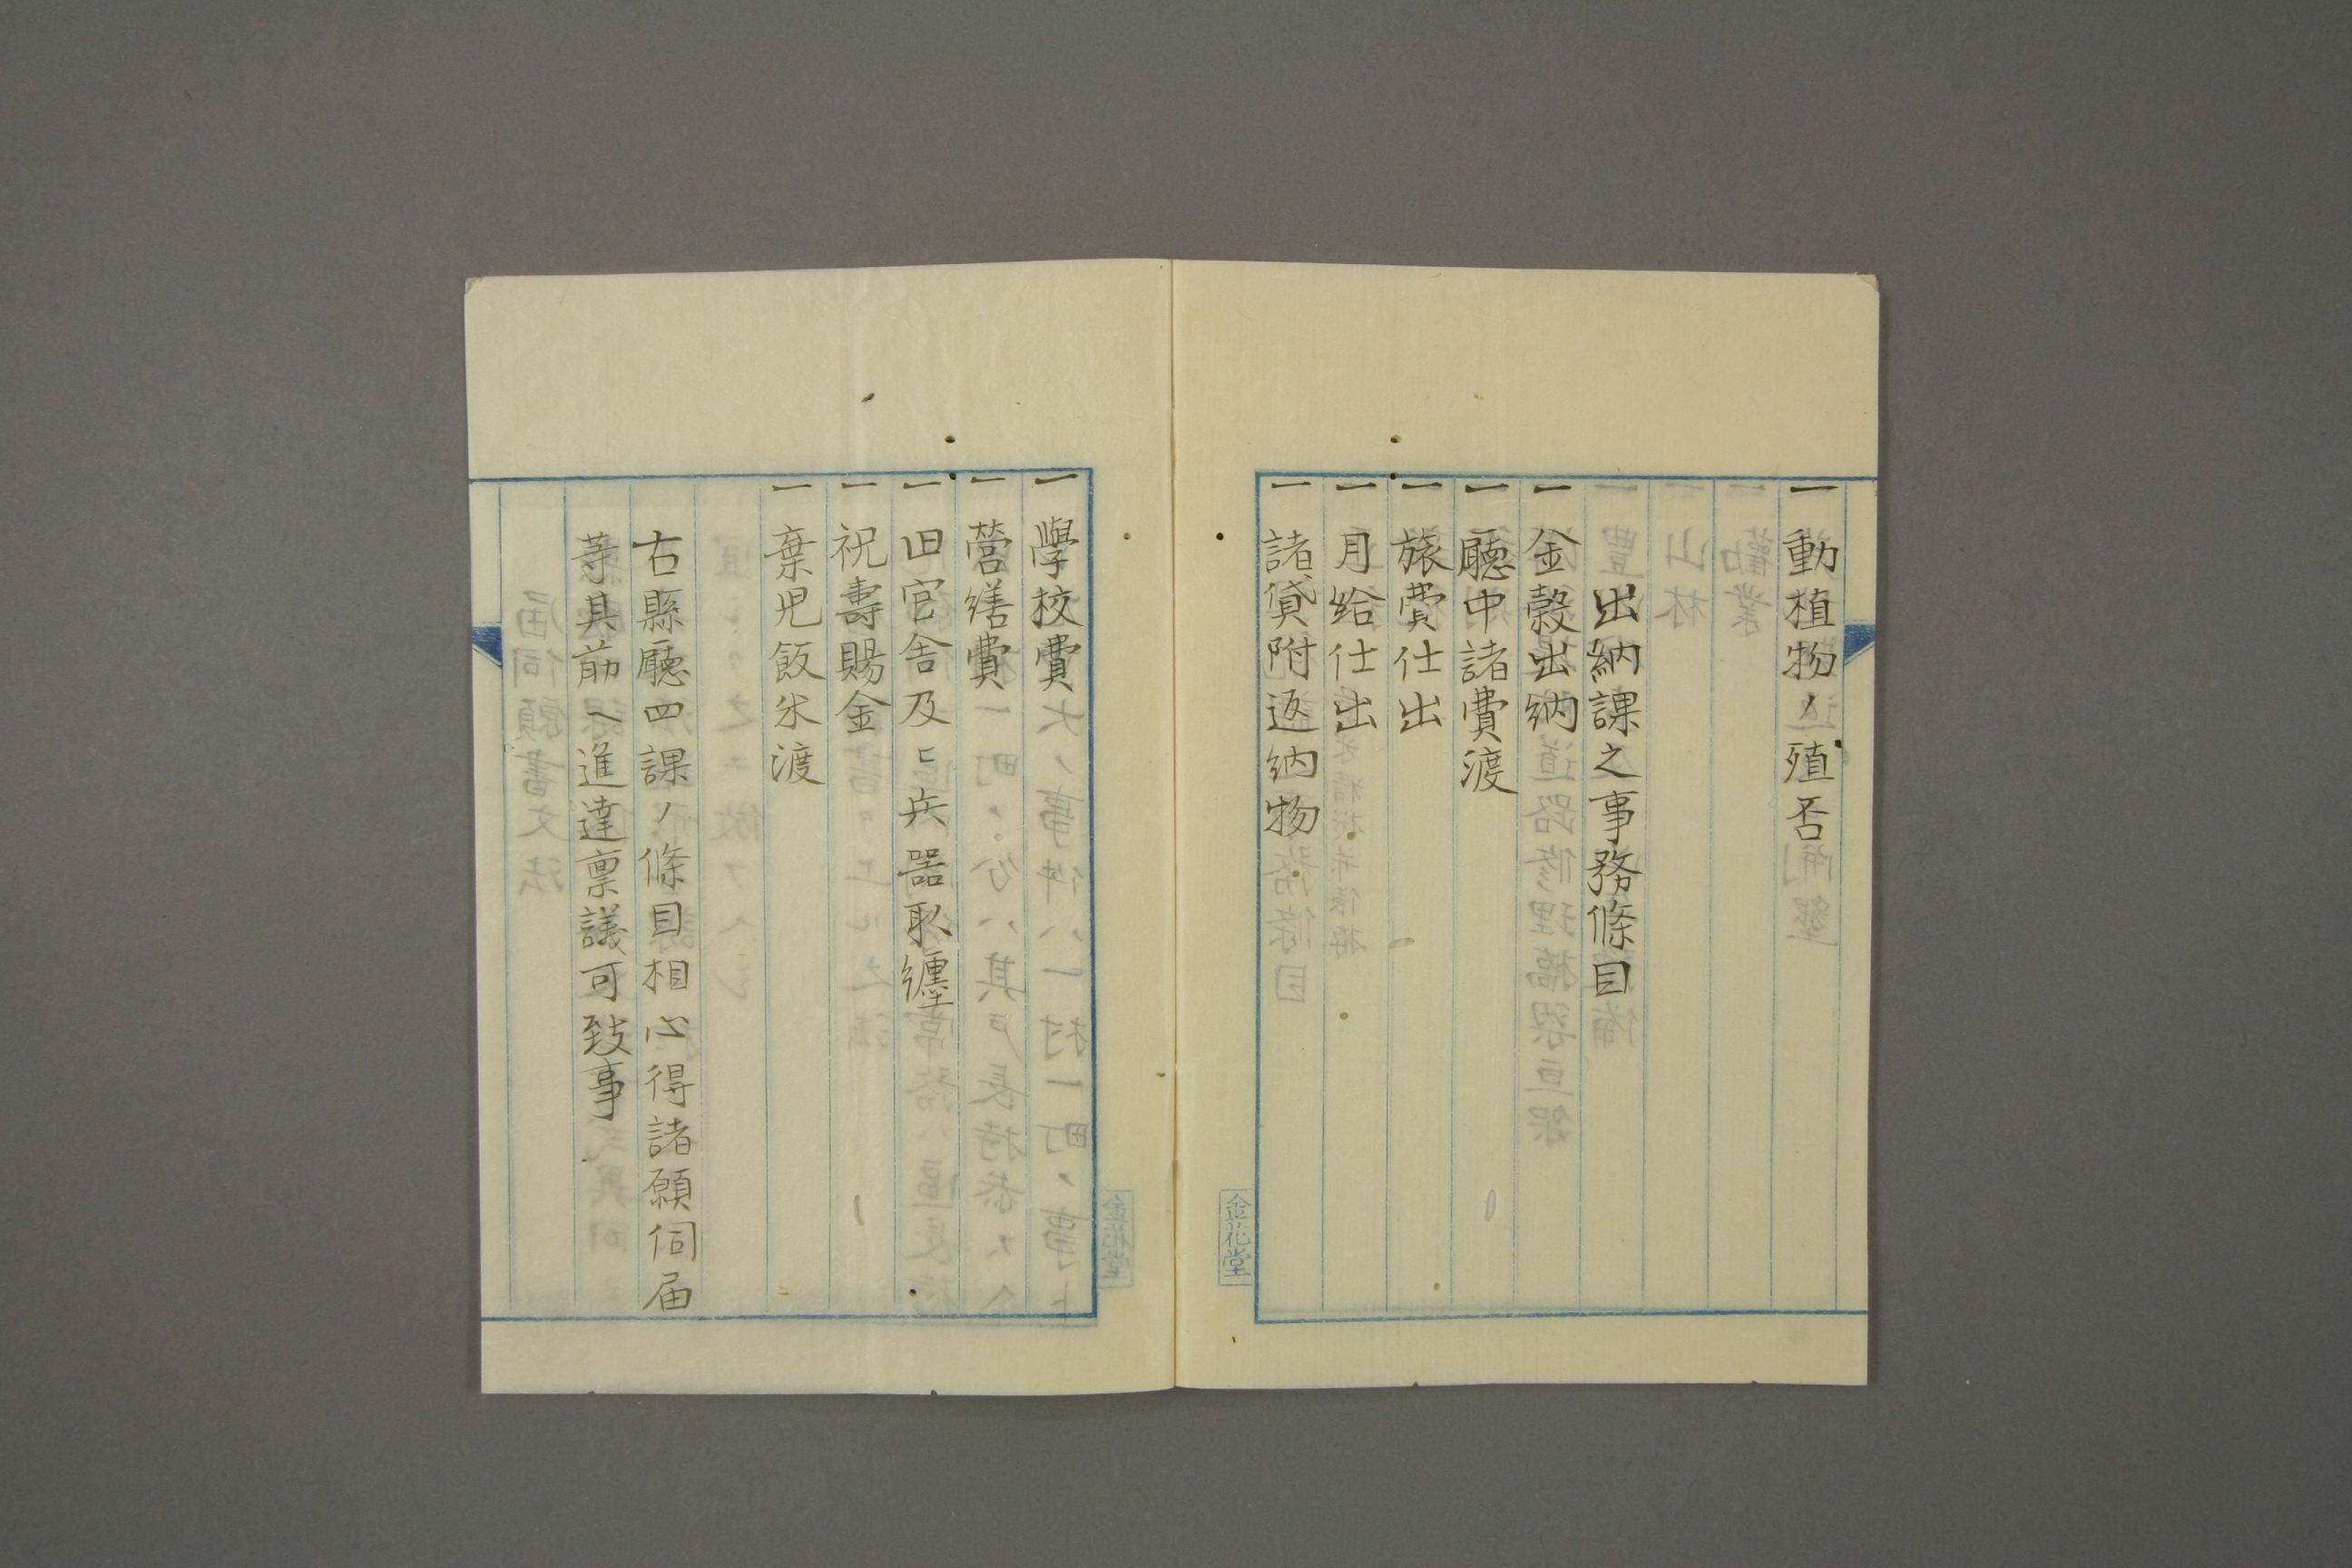 一 動植物ノ殖否
出納課之事務條目
一 金穀出納
一 廳中諸費渡
一 旅費仕出
一 月給仕出
一 諸貸附返納物
金花堂
一 學校費
一 營繕費
一 旧官舎及ヒ兵器取纏
一 祝壽賜金
一 棄児飯米渡
右縣廳四課ノ條目相心得諸願伺届
等其筋ヘ進達禀議可致事